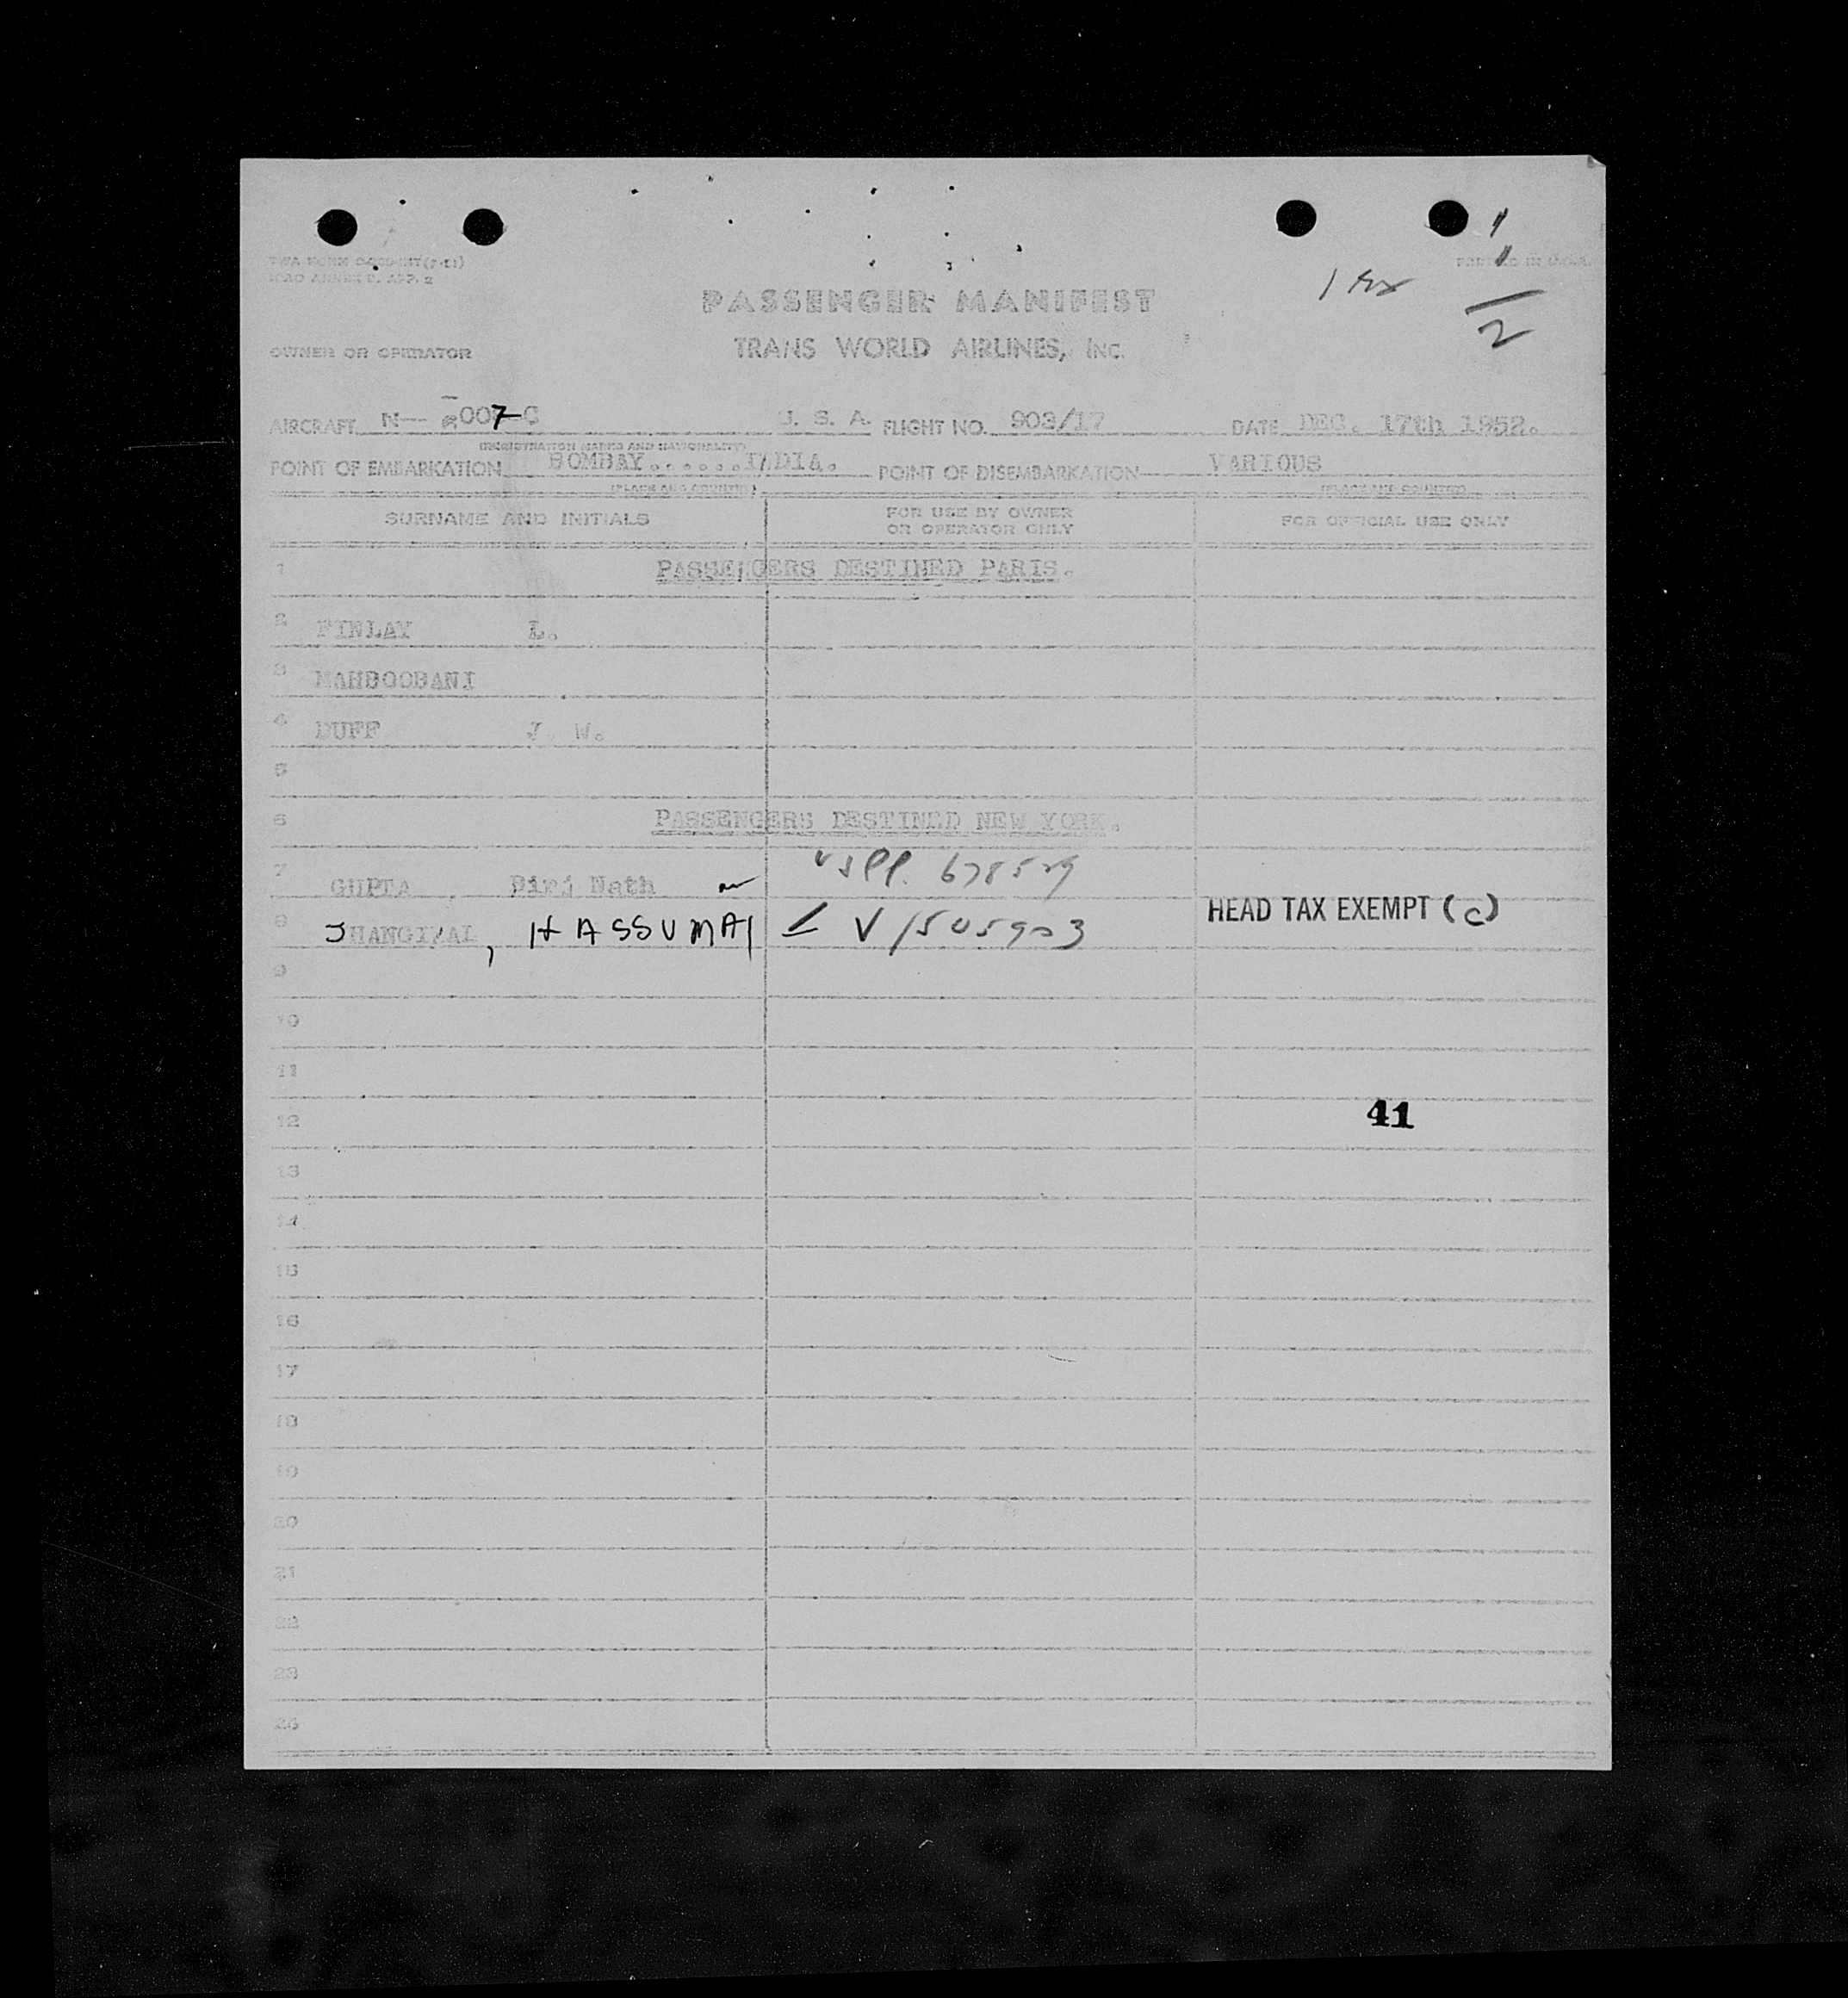 ICAO ANNEX 9, APP. 2
PRINTED IN U.S.A.
PASSENGER MANIFEST
OWNER OR OPERATOR TRANS WORLD AIRLINES, INC.
AIRCRAFT N-- 2007-C U. S. A. FLIGHT NO. 903/17 DATE DEC. 17th 1952.
(REGISTRATION MARKS AND NATIONALITY)
POINT OF EMBARKATION BOMBAY......INDIA. POINT OF DISEMBARKATION VARIOUS
(PLACE AND COUNTRY) (PLACE AND COUNTRY)
SURNAME AND INITIALS FOR USE BY OWNER OR OPERATOR ONLY FOR OFFICIAL USE ONLY
1 PASSENGERS DESTINED PARIS.
2 FINLAY L.
3 MAHBOOBANI
4 DUFF J. W.
5
6 PASSENGERS DESTINED NEW YORK.
7 GUPTA, Birj Nath USPP. 678529
8 JHANGIMAL, HASSUMAL V1505903 HEAD TAX EXEMPT (C)
9
10
11
12 41
13
14
15
16
17
18
19
20
21
22
23
24